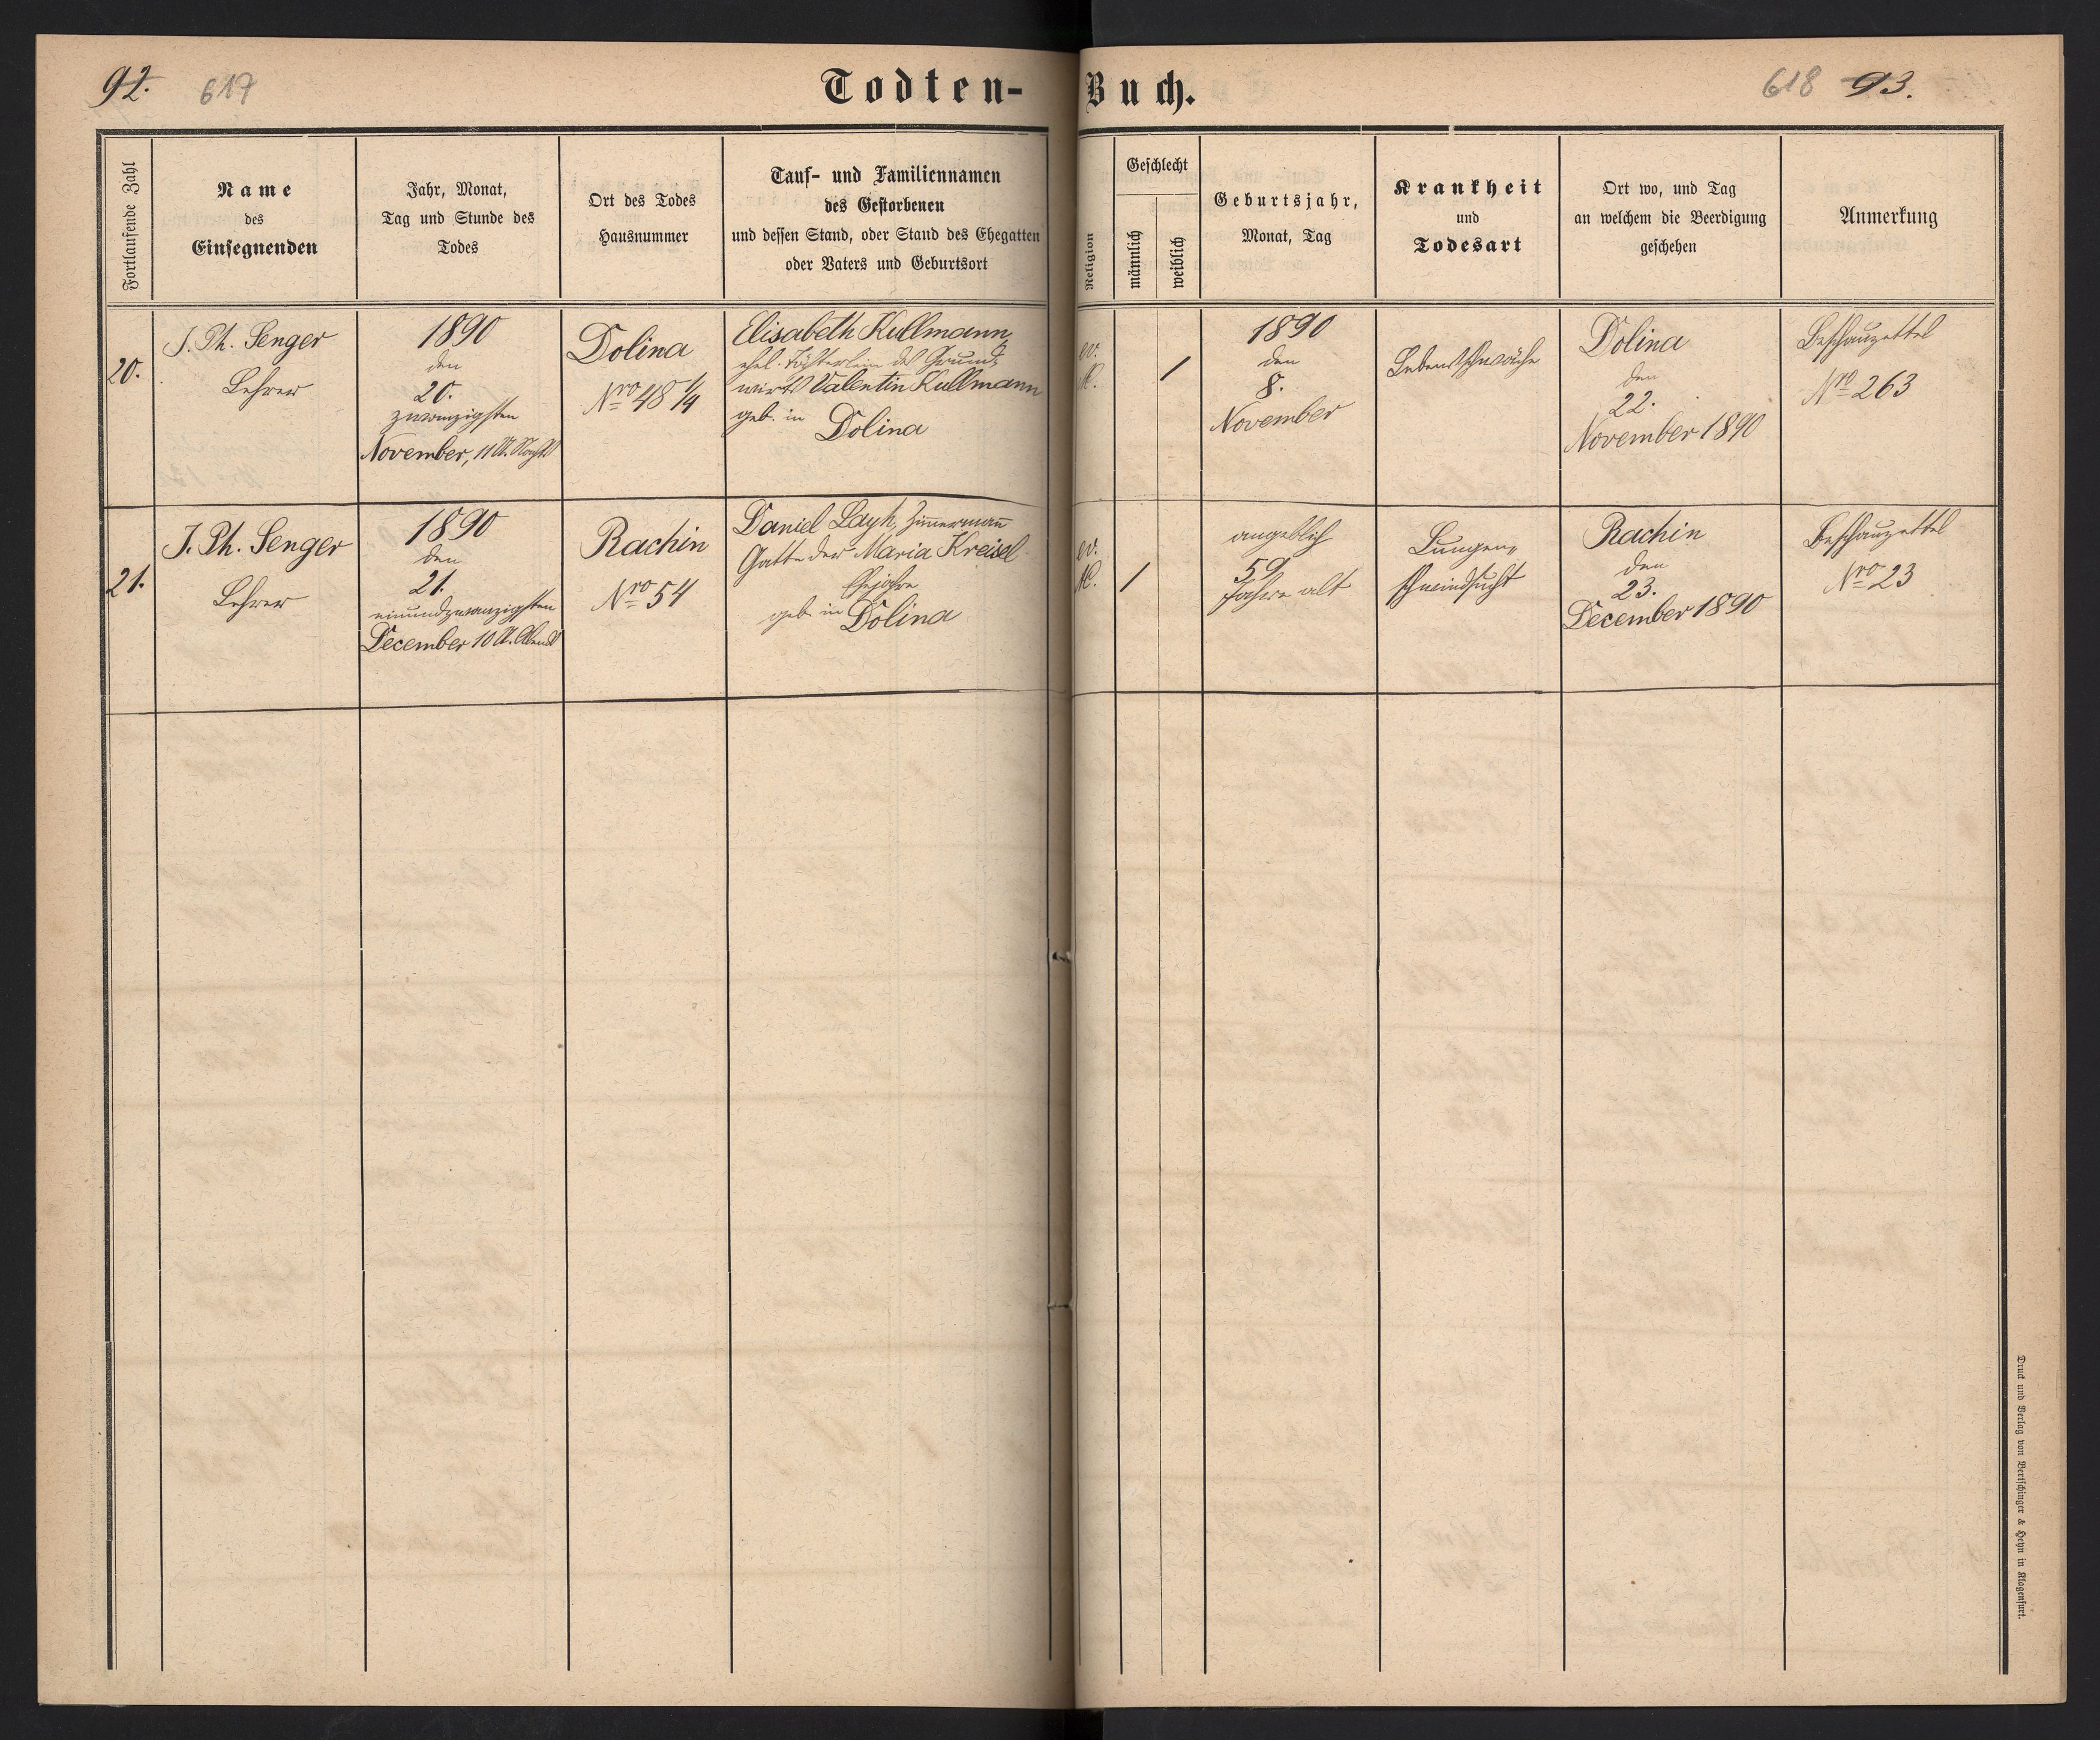 92. 617
Todten-Buch.
618 93.
Fortlaufende Zahl
Name
des
Einsegnenden
Jahr, Monat,
Tag und Stunde des
Todes
Ort des Todes
Hausnummer
Tauf- und Familiennamen
des Gestorbenen
und dessen Stand, oder Stand des Ehegatten
oder Vaters und Geburtsort
Religion
Geschlecht
männlich
weiblich
Geburtsjahr,
Monat, Tag
Krankheit
und
Todesart
Ort wo, und Tag
an welchem die Beerdigung
geschehen
Anmerkung
20.
J. Ph. Senger
Lehrer
1890
den
20.
zwanzigsten
November, 11 U. Nachts
Dolina
Nro 48 1/4
Elisabeth Kullmann,
ehel. Töchterlein des Grund-
wirts Valentin Kullmann
geb. in Dolina
ev.
/
1890
den
8.
November
Lebensschwäche
Dolina
den
22.
November 1890
Beschauzettel
Nro 263
21.
J. Ph. Senger
Lehrer
1890
den
21.
einundzwanzigsten
December 10 U. Abends
Rachin
Nro 54
Daniel Layh, Zimmermann
Gatte der Maria Kreisel
geb. in Dolina
ev.
/
angeblich
59
Jahre alt
Lungen-
schwindsucht
Rachin
den
23.
December 1890
Beschauzettel
Nro 23
Druck und Verlag von Bertschinger & Heyn in Klagenfurt.